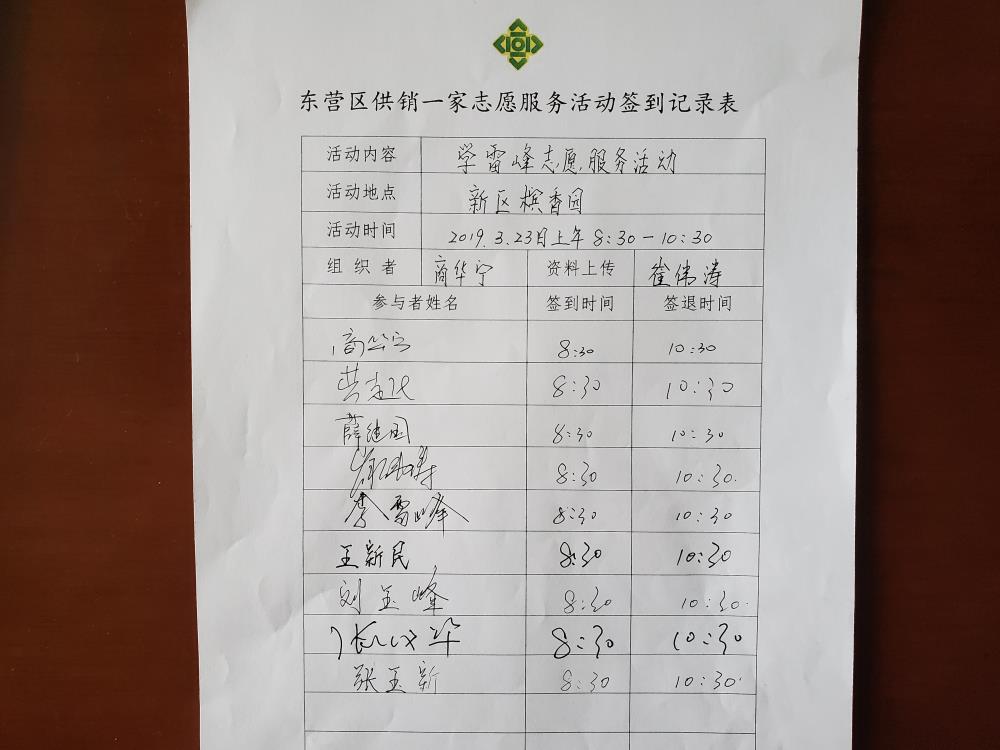 东营区供销一家志愿服务活动签到记录表
活动内容 学雷峰志愿服务活动
活动地点 新区槟香园
活动时间 2019.3.23日上午 8:30-10:30
组织者 商华宁 资料上传 崔伟涛
参与者姓名 签到时间 签退时间
商华宁 8:30 10:30
8:30 10:30
薛建国 8:30 10:30
崔伟涛 8:30 10:30
李雷峰 8:30 10:30
王新民 8:30 10:30
刘玉峰 8:30 10:30
8:30 10:30
张玉新 8:30 10:30